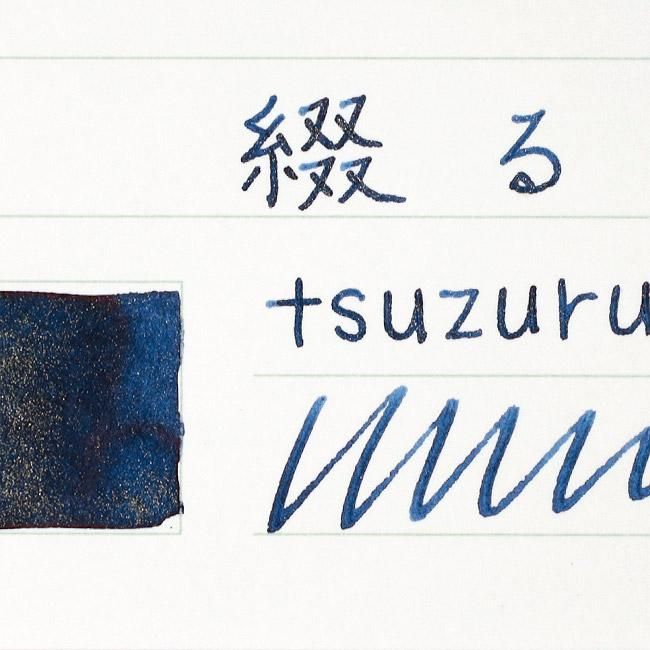 綴る
tsuzuru